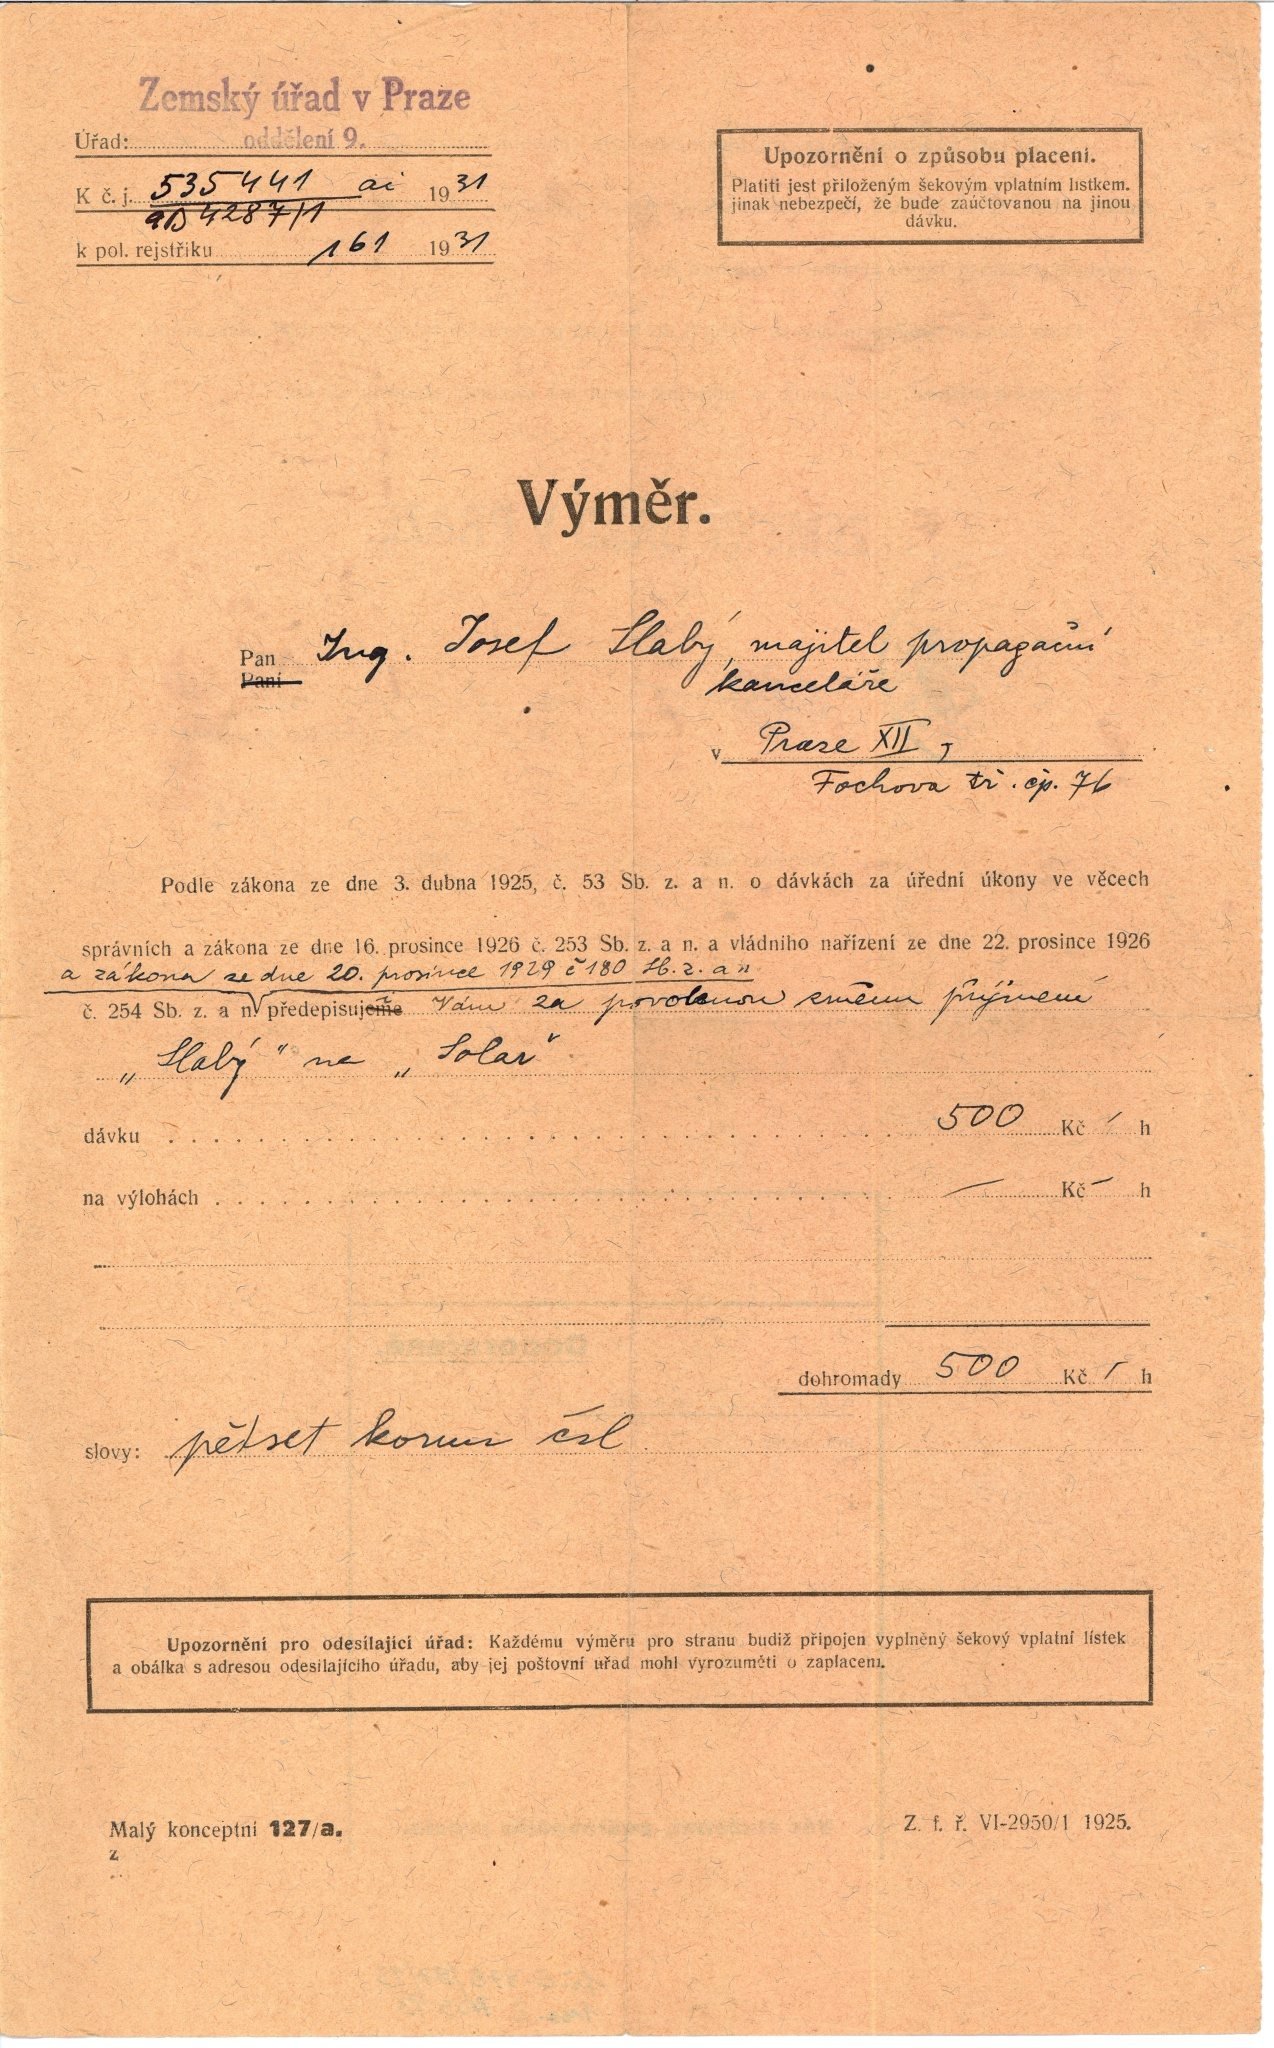 Zemský úřad v Praze
oddělení 9.
Úřad:
K č. j. 535441 ai 1931
9D 4287/1
k pol. rejstříku 161 1931
Upozornění o způsobu placení.
Platiti jest přiloženým šekovým vplatním lístkem.
jinak nebezpečí, že bude zaúčtovanou na jinou
dávku.
Výměr.
Pan Ing. Josef Slabý, majitel propagační
Paní
kanceláře
v Praze XII,
Fochova tř. čp. 76
Podle zákona ze dne 3. dubna 1925, č. 53 Sb. z. a n. o dávkách za úřední úkony ve věcech
správních a zákona ze dne 16. prosince 1926 č. 253 Sb. z. a n. a vládního nařízení ze dne 22. prosince 1926
a zákona ze dne 20. prosince 1929 č 180 Sb. z. a n
č. 254 Sb. z. a n. předepisujeme Vám za povolenou změnu příjmení
„Slabý" na „Solar"
dávku 500 Kč h
na výlohách — Kč — h
dohromady 500 Kč h
slovy: pětset korun čsl
Upozornění pro odesílající úřad: Každému výměru pro stranu budiž připojen vyplněný šekový vplatní lístek
a obálka s adresou odesílajícího úřadu, aby jej poštovní úřad mohl vyrozuměti o zaplacení.
Malý konceptní 127/a.
z
Z. f. ř. VI-2950/1 1925.